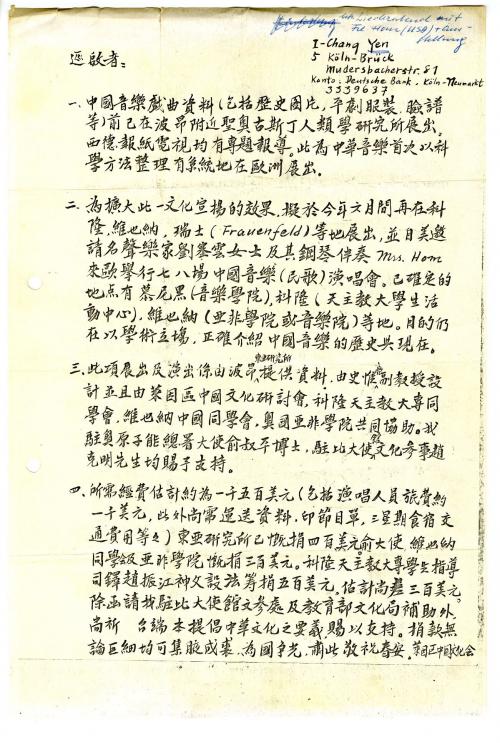 mit
Fr. Hom (USA) + Aus-
stellung
I-Chang Yen
5 Köln-Brück
Mudersbacherstr. 81
Konto: Deutsche Bank, Köln-Neumarkt
3339637
逕啟者:
一、中國音樂戲曲資料(包括歷史圖片,平劇服裝,臉譜
等)前已在波昂附近聖奧古斯丁人類學研究所展出。
西德報紙電視均有專題報導。此為中華音樂首次以科
學方法整理有系統地在歐洲展出。
二、為擴大此一文化宣揚的效果,擬於今年六月間再在科
隆,維也納,瑞士(Frauenfeld)等地展出,並自美邀
請名聲樂家劉塞雲女士及其鋼琴伴奏 Mrs. Hom
來歐舉行七八場中國音樂(民歌)演唱會。已確定的
地点有慕尼黑(音樂學院),科隆(天主教大學生活
動中心),維也納(亞非學院或音樂院)等地。目的仍
在以學術立場,正確介紹中國音樂的歷史與現在。
三、此項展出及演出係由波昂東亞研究所提供資料,由史惟亮副教授設
計並且由萊因區中國文化研討會,科隆天主教大專同
學會,維也納中國同學會,奧國亞非學院共同協助。我
駐奧原子能總署大使俞叔平博士,駐比大使館文化參事趙
克明先生均賜予支持。
四、所需經費估計約為一千五百美元(包括演唱人員旅費約
一千美元,此外尚需運送資料,印節目單,三星期食宿交
通費用等々)東亞研究所已慨捐四百美元,俞大使,維也納
同學會及亞非學院慨捐三百美元。科隆天主教大專學生指導
司鐸趙振江神父設法籌捐五百美元。估計尚差三百美元。
除函請我駐比大使館文參處及教育部文化局補助外,
尚祈 台端本提倡中華文化之要義賜以支持。捐款無
論巨細均可集腋成裘,為國爭光,肅此敬祝春安。萊因區中國文化會